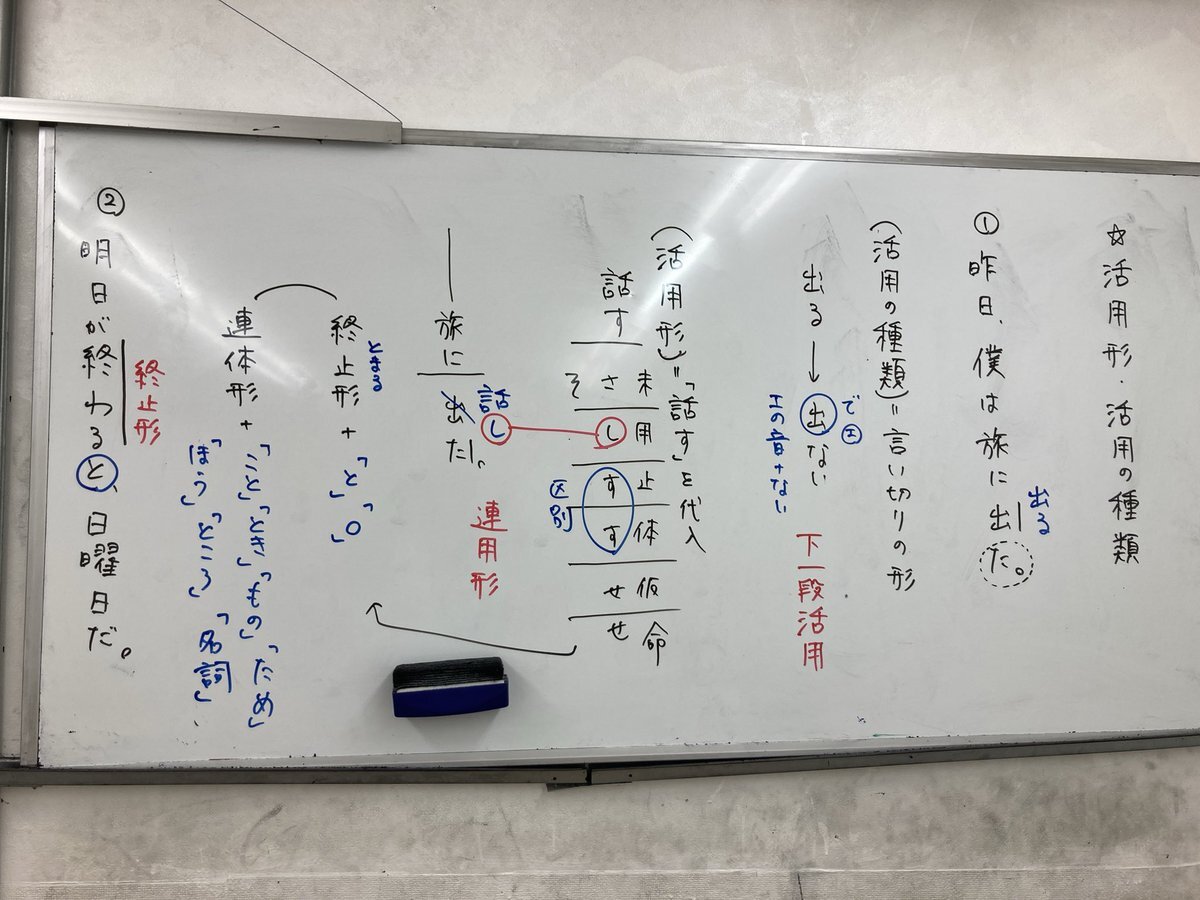 ☆活用形・活用の種類
① 昨日、僕は旅に出た。
出る
(活用の種類)=言い切りの形
出る→出ない
で
エの音+ない
下一段活用
(活用形)=「話す」を代入
話す
未 用 止 体 仮 命
そ さ し す す せ せ
区別
旅に出た。
話し
連用形
終止形+「と」「。」
とまる
連体形+「こと」「とき」「もの」「ため」
「ほう」「ところ」「名詞」
終止形
② 明日が終わると、日曜日だ。